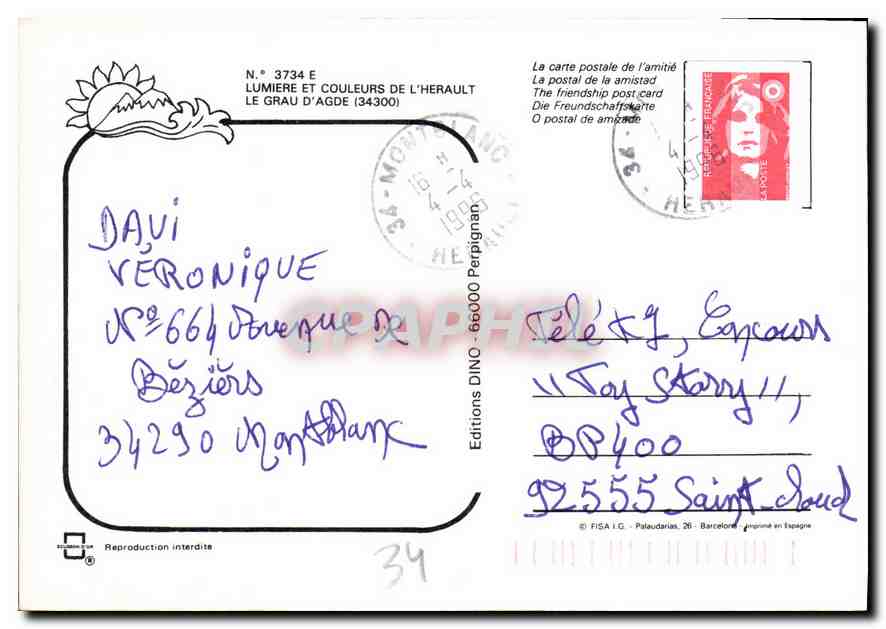 N.° 3734 E
LUMIERE ET COULEURS DE L'HERAULT
LE GRAU D'AGDE (34300)
La carte postale de l'amitié
La postal de la amistad
The friendship post card
Die Freundschaftskarte
O postal de amizade
34 - MONTBLANC
16 H
4 - 4
1996
HERAULT
34 -
4 - 4
1996
HERAULT
REPUBLIQUE FRANÇAISE
LA POSTE
DAVI
VÉRONIQUE
N° 664 Avenue de
Béziers
34290 Montblanc
Editions DINO - 66000 Perpignan
Télé K7, Concours
"Toy Story",
BP 400
92555 Saint-Cloud
© FISA I.G. - Palaudarias, 26 - Barcelona - Imprimé en Espagne
ECUDO D'OR
®
Reproduction interdite
34
CPAPHIL